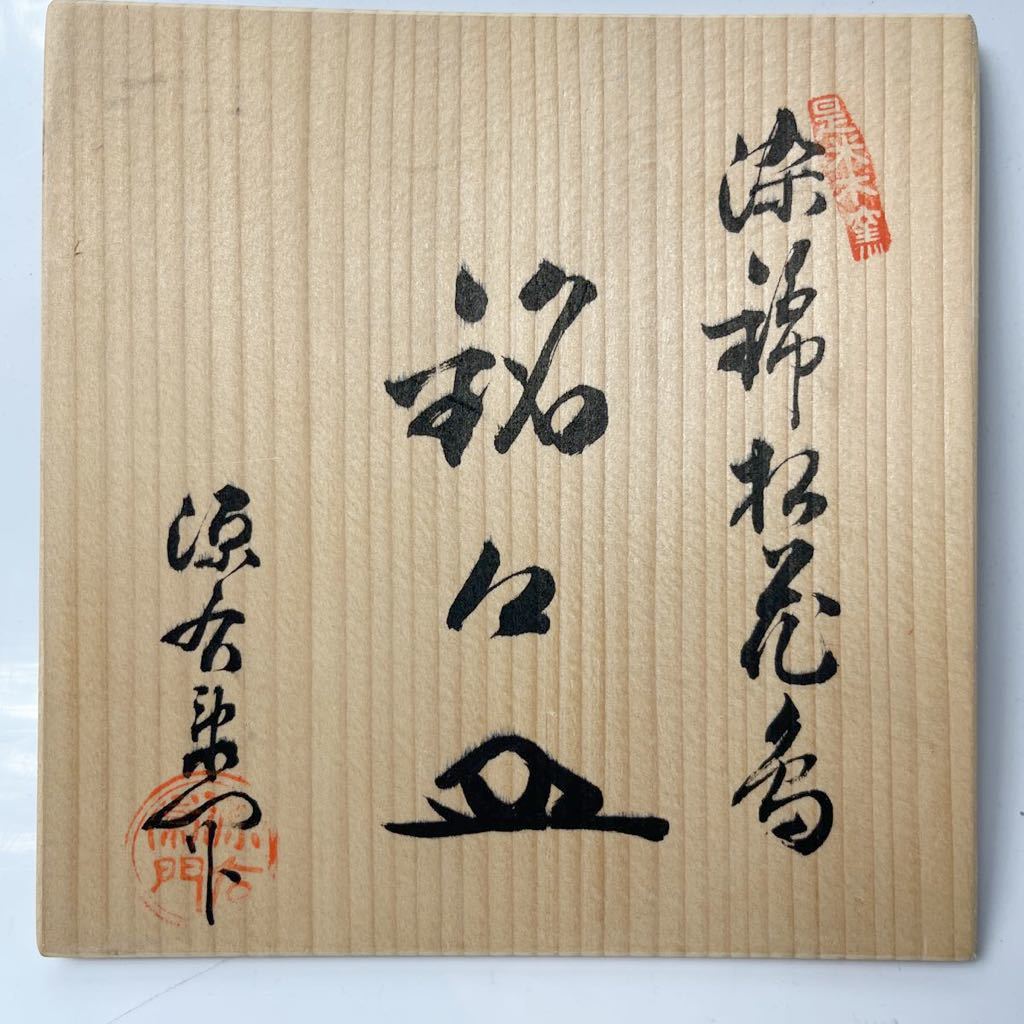 是米木窯
染錦松花鳥
銘々皿
源右衛門作
源右衛門